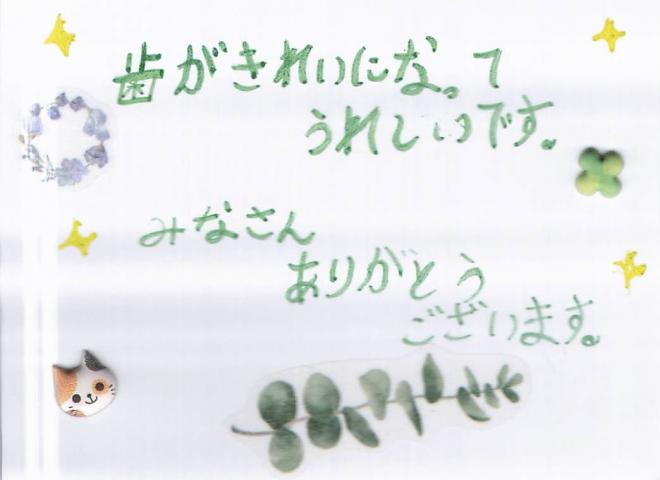 歯がきれいになって
うれしいです。
みなさん
ありがとう
ございます。